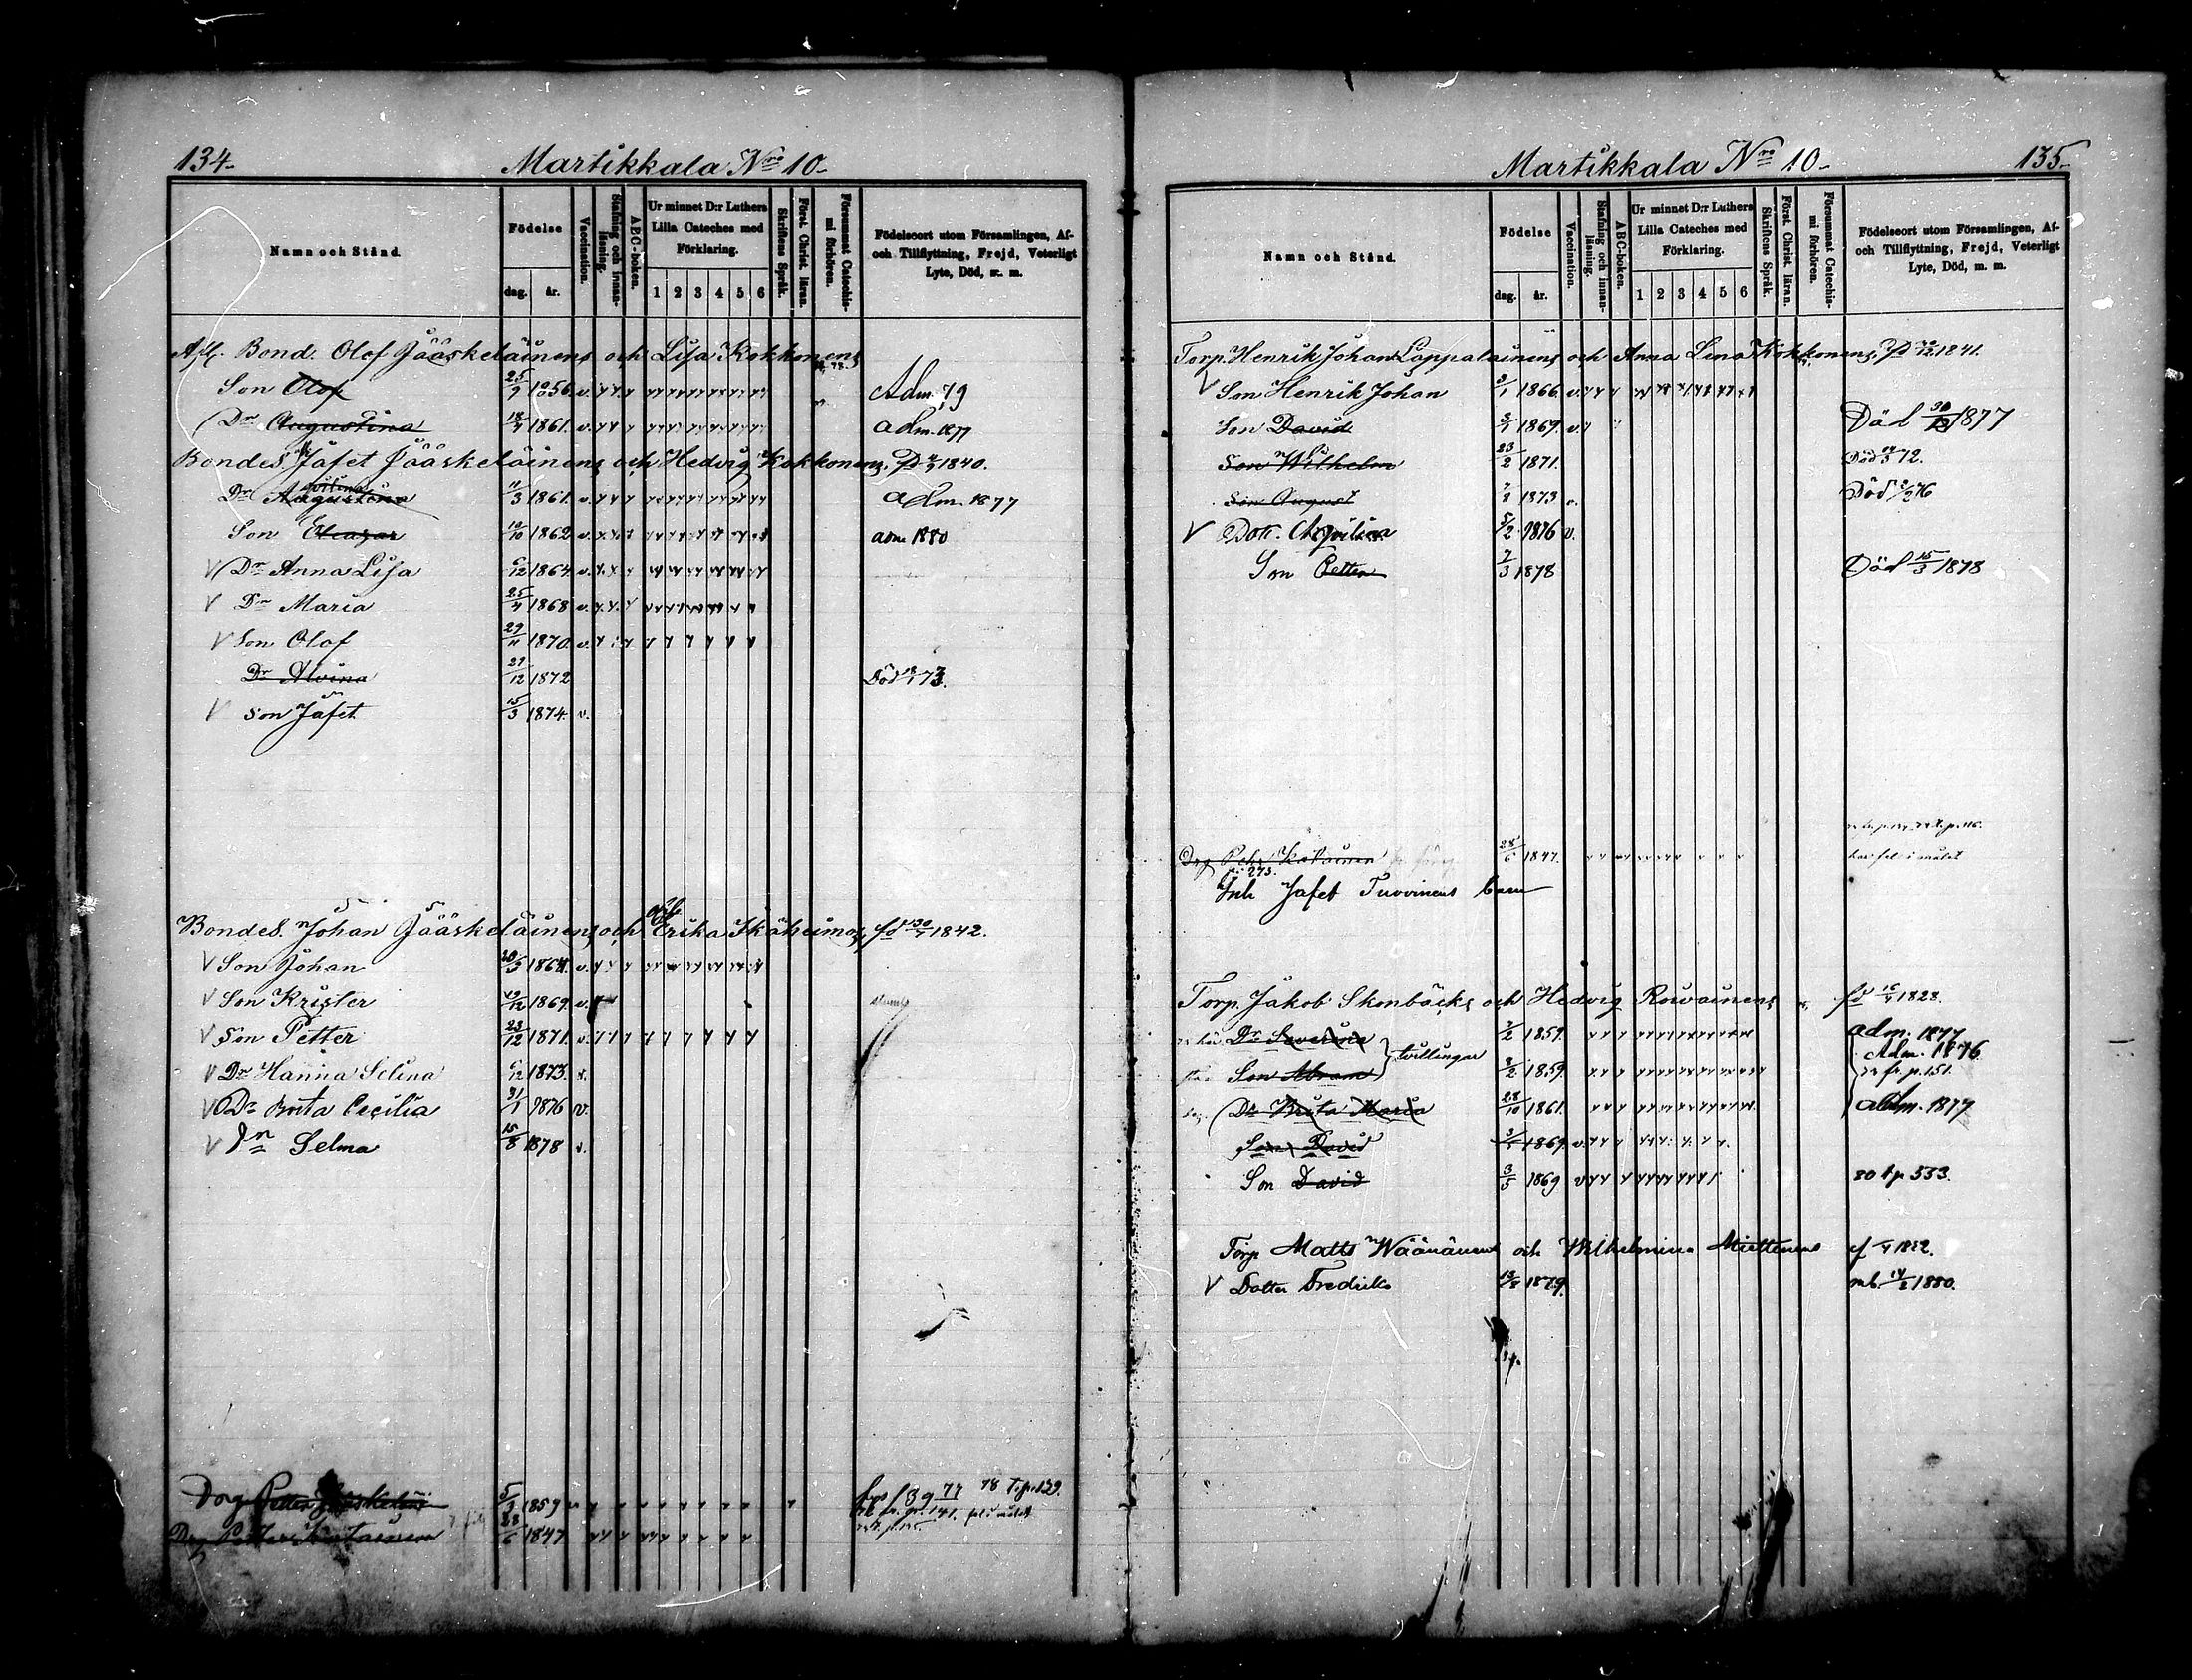 134-
Martikkala Nro 10-
Namn och Stånd.
Födelse
dag. år.
Vaccination.
Stafning och innanläsning.
ABC-boken.
Ur minnet D:r Luthers Lilla Cateches med Förklaring.
1 2 3 4 5 6
Skriftens Språk.
Först. Christ. läran.
Försummat Catechismi förhören.
Födelseort utom Församlingen, Af- och Tillflyttning, Frejd, Veterligt Lyte, Död, m. m.
Afl. Bond. Olof Jääskeläinens och Lisa Kokkonens
Son Olof 25/9 1856. v. Adm. 79
Dr Augustina 18/7 1861. v. adm. 1877
Bondes. Jafet Jääskeläinens och Hedvig Kokkonens. 1840.
Dr Augustina 11/3 1861. v. adm. 1877
Son Eleazar 10/10 1862 v. adm 1880
V Dr Anna Lisa 6/12 1864. v.
V Dr Maria 25/4 1868 v.
V Son Olof 29/11 1870. v.
Dr Alvina 27/12 1872 Död 73.
V Son Jafet 15/3 1874. v.
Bondes. Johan Jääskeläinens och Erika Ikäheimos, fd 1842.
V Son Johan 1864. v.
V Son Krister 1869. v.
V Son Petter 23/12 1871. v.
V Dr Hanna Selina 6/12 1873. v.
V Dr Brita Cecilia 31/1 1876 v.
V Dr Selma 15/8 1878 v.
Dreng Petter Jääskeläin 5/3 1859 78 t. p. 139.
Drg Petter 28/6 1847
135-
Martikkala Nro 10-
Namn och Stånd.
Födelse
dag. år.
Vaccination.
Stafning och innanläsning.
ABC-boken.
Ur minnet D:r Luthers Lilla Cateches med Förklaring.
1 2 3 4 5 6
Skriftens Språk.
Först. Christ. läran.
Försummat Catechismi förhören.
Födelseort utom Församlingen, Af- och Tillflyttning, Frejd, Veterligt Lyte, Död, m. m.
Torp. Henrik Johan Lappalainens och Anna Lena Kokkonens. 1841.
V Son Henrik Johan 3/1 1866. v.
Son David 3/1 1869. v. Död 1877
Son Wilhelm 23/2 1871. Död 72.
Son August 7/8 1873 v. Död 76
V Dott. Aqvilina 5/2 1876 v.
Son Petter 7/3 1878 Död 15/3 1878
Drg Pehr 28/6 1847.
p. 273.
Inh Jafet Tuovinens barn
Torp. Jakob Skonbäcks och Hedvig Rouvainens fd 1828.
Dr Severina 2/2 1859. adm. 1877
tvillingar
Son Abram 2/2 1859. Adm. 1876
fr. p. 151.
Dr Brita Maria 28/10 1861. adm. 1877
Son David 1869. v.
Son David 3/5 1869 v 80 t p 533.
Torp Matts Wäänänens och Wilhelmina Miettinens
V Dotter Fredrika 1879. 1880.